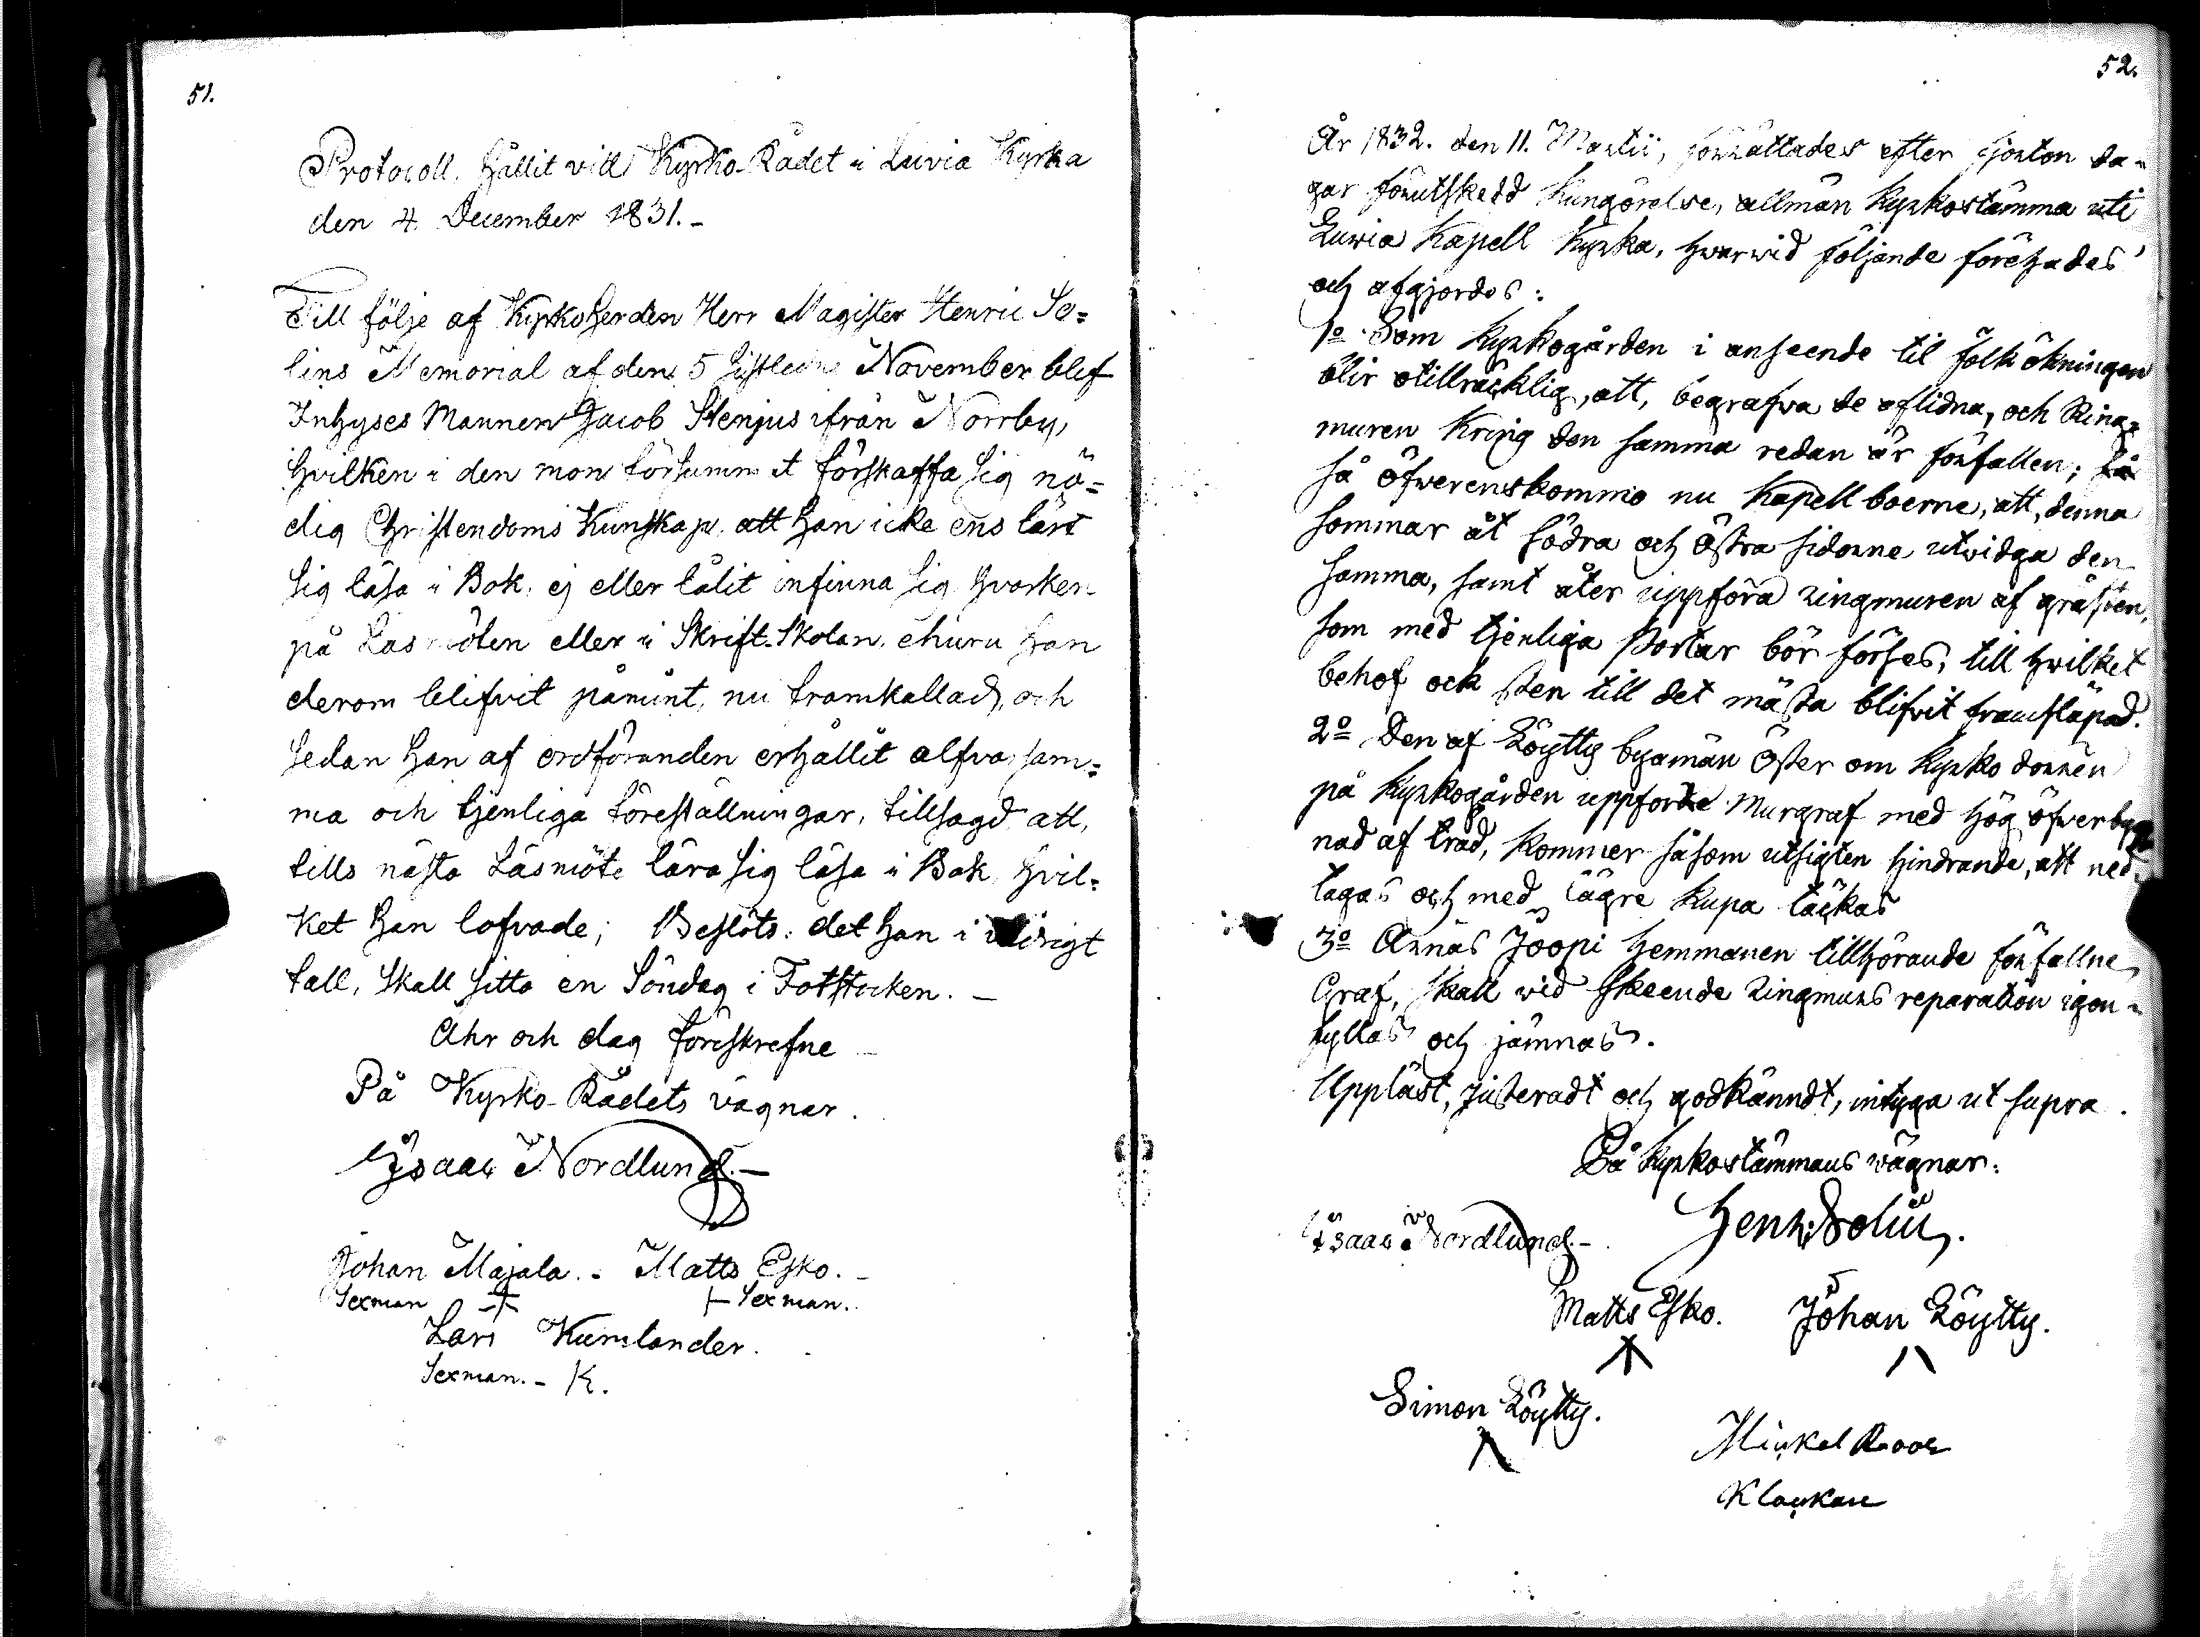 51.
Protocoll, hållit vid Kyrko-Rådet i Luvia Kyrka
den 4 December 1831.-
Till följe af Kyrkoherden Herr Magister Henric So=
lins Memorial af den 5 sistledne November blef
Inhyses Mannen Jacob Stenjus ifrån Norrby,
hvilken i den mon försummat förskaffa sig nö=
dig Christendoms Kunskap, att han icke ens lärt
sig läsa i Bok, ej eller låtit infinna sig hvarken
på Läsmöten eller i Skrift-Skolan, ehuru han
derom blifvit påmint, nu framkallad, och
sedan han af ordföranden erhållit alfvarsam=
ma och tjenliga föreställningar, tillsagd att,
tills nästa Läsmöte lära sig läsa i Bok, hvil=
ket han lofvade; Beslöts: det han i vidrigt
fall, skall sitta en Söndag i Fotstocken. -
Ahr och dag föreskrefne
På Kyrko-Rådets vägnar.
Isaac Nordlund.-
Johan Majala. - Matts Esko. -
Sexman Sexman.
Lars Kumlander.
Sexman. - K.
52.
År 1832. den 11. Martii, förrättades efter fjorton da=
gar förutskedd kungörelse, allmän kyrkostämma uti
Luwia Kapell Kyrka, hwarwid följande förehades
och afgjordes:
1o Som kyrkogården i anseende til folkökningen
blir otillräcklig, att, begrafwa de aflidna, och Ring=
muren kring den samma redan är förfallen;
så öfwerenskommo nu Kapellboerne, att, denna
sommar åt södra och östra sidorne utwidga den
samma, samt åter uppföra ringmuren af gråsten,
som med tjenliga Portar bör förses, till hwilket
behof ock sten till det mästa blifvit framsläpad.
2o Den af Löytty byamän öster om kyrko dörren
på kyrkogården uppförde Murgraf med hög öfwerbygg
nad af träd, kommer såsom utsigten hindrande, att ned=
tagas och med lägre kupa täckas
3o Arnäs Joopi hemmanen tillhörande förfallne
Graf, skall wid skeende ringmurs reparation igen=
fyllas och jämnas.
Uppläst, justeradt och godkänndt, intyga ut supra.
På kyrkostämmans wägnar:
Isaac Nordlund.- Henr. Solin.
Matts Esko. Johan Löytty.
Simon Löytty.
Mickel Roos
Klockare